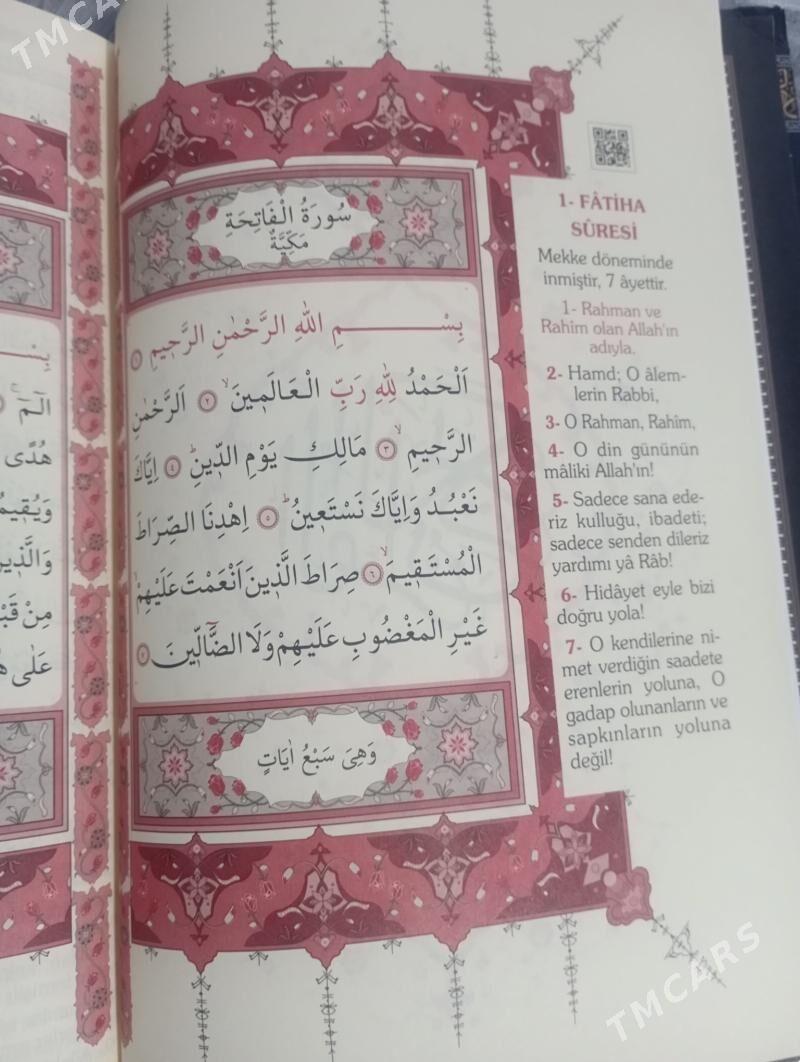 TMCARS
سُورَةُ الْفَاتِحَةِ
مَكِّيَّةٌ
بِسْمِ اللهِ الرَّحْمٰنِ الرَّحِيمِ ١
اَلْحَمْدُ لِلّٰهِ رَبِّ الْعَالَمِينَۙ ٢ اَلرَّحْمٰنِ
الرَّحِيمِۙ ٣ مَالِكِ يَوْمِ الدِّينِۜ ٤ اِيَّاكَ
نَعْبُدُ وَاِيَّاكَ نَسْتَعِينُۜ ٥ اِهْدِنَا الصِّرَاطَ
الْمُسْتَقِيمَۙ ٦ صِرَاطَ الَّذِينَ اَنْعَمْتَ عَلَيْهِمْۙ
غَيْرِ الْمَغْضُوبِ عَلَيْهِمْ وَلَا الضَّٓالِّينَ ٧
وَهِىَ سَبْعُ اٰيَاتٍ
1- FÂTİHA
SÛRESİ
Mekke döneminde
inmiştir, 7 âyettir.
1- Rahman ve
Rahîm olan Allah'ın
adıyla.
2- Hamd; O âlem-
lerin Rabbi,
3- O Rahman, Rahîm,
4- O din gününün
mâliki Allah'ın!
5- Sadece sana ede-
riz kulluğu, ibadeti;
sadece senden dileriz
yardımı yâ Râb!
6- Hidâyet eyle bizi
doğru yola!
7- O kendilerine ni-
met verdiğin saadete
erenlerin yoluna, O
gadap olunanların ve
sapkınların yoluna
değil!
الٓمٓ
هُدًى
وَالَّذِينَ
مِنْ
عَلٰى
TMCARS